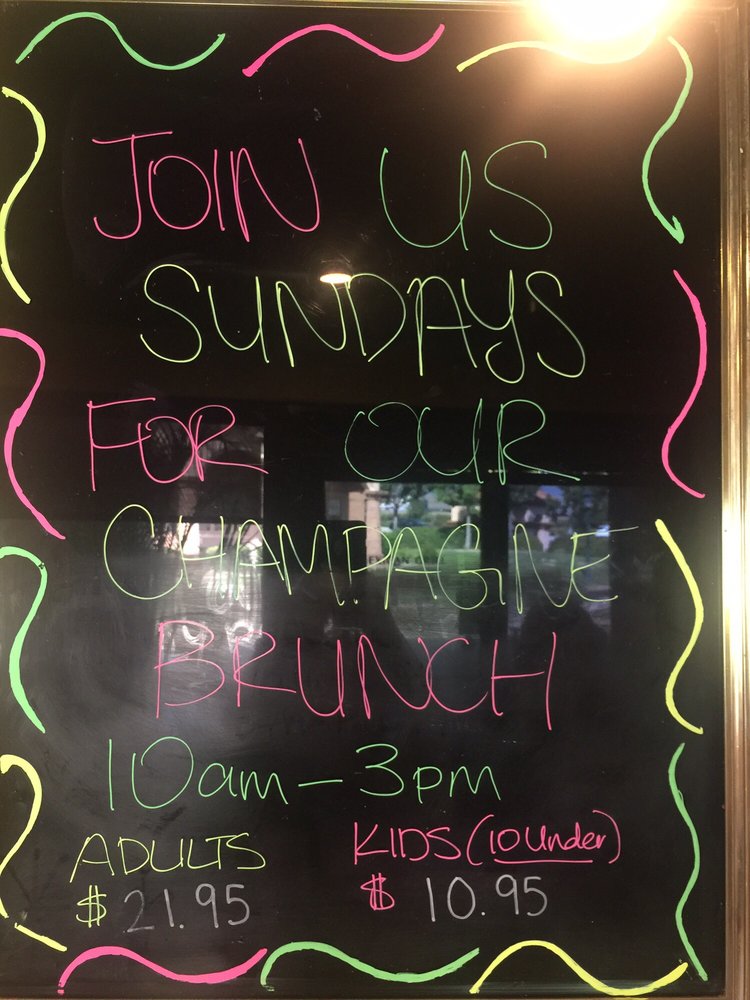 JOIN US
SUNDAYS
FOR OUR
CHAMPAGNE
BRUNCH
10am-3pm
ADULTS KIDS (10 under)
$21.95 $10.95